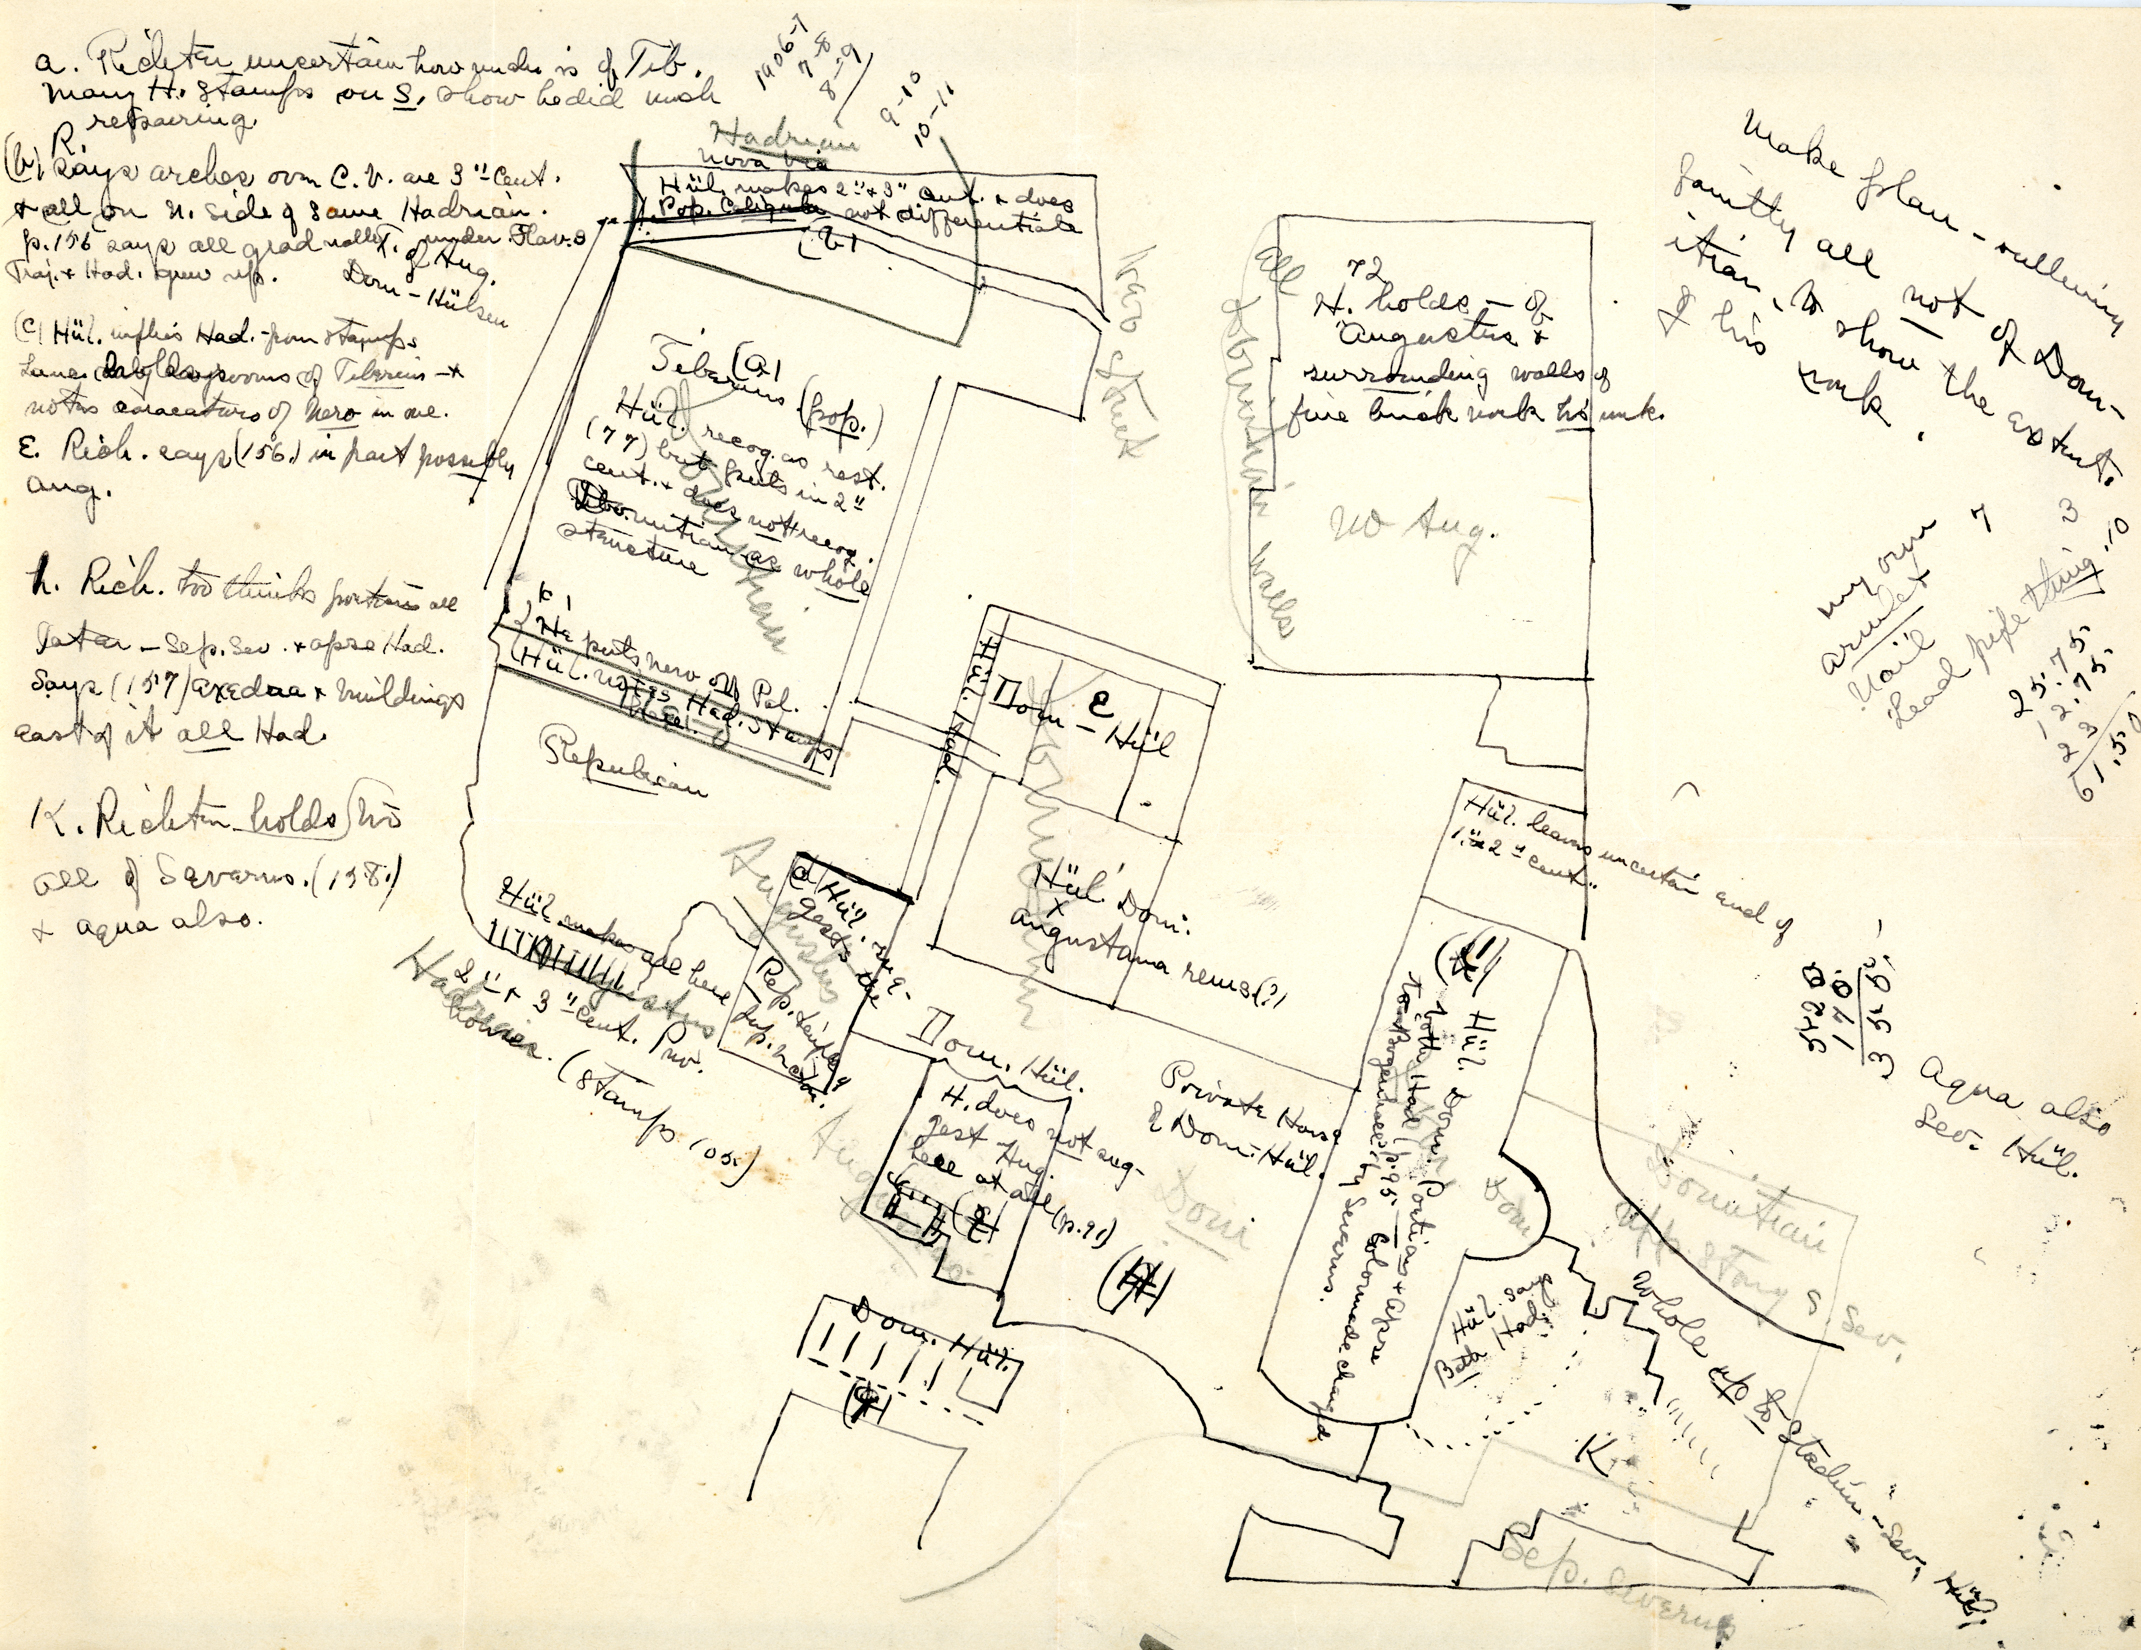 a. Richter uncertain how much is of Tib.
Many H. Stamps on S. show he did much
repairing.
(b) R. says arches over C.V. are 3" cent.
+ all on N. side of same Hadrian.
p.156 says all gradually under Flav. &
Traj. + Had. grew up.
T. of Aug.
Dom - Hülsen
(c) Hül. Had. from stamps
rooms of Tiberius - +
notes caracatures of Nero in one.
E. Rich. says (156.) in part possibly
Aug.
h. Rich. too thinks portions all
later - Sep. Sev. + apse Had.
Says (157) exedra + buildings
east of it all Had.
K. Richter holds his
all of Severus. (158.)
+ aqua also.
1906-7
7-8
8-9
9-10
10-11
Hadrian
nova via
Hül. makes 2" + 3" cent. + does
Pop. Caligula not differentiate
(b)
Tiberius (a)
(pop.)
Hül. recog. as rest.
(77) but puts in 2"
cent. + does not recog.
Domitian as whole
structure
Domitian
K
He puts Nero on Pal.
Hül. notes Had. stamps
here.
Republican
Nero street
All
Domitian
walls
72
H. holds - of
Augustus +
surrounding walls of
fine brick work his work.
No Aug.
Make plan - outlining
faintly all not of Dom-
itian, to show the extent
of his work.
my own 7
armlet 3
Nail
Lead pipe thing .10
25.75
12.75
23
61.50
Hül. Had.
E
Dom - Hül
Domitian
Hül. Dom.
x
Augustana rems (?)
Hül. leaves uncertain end of
1" or 2" cent.
Augustus
d Hül. sug-
gests the
Rep. temple of
Jup. Victor.
Hül. makes all here
2" + 3" cent. Priv.
houses. (Stamps 105.)
Hadrian
Augustus
Dom. Hül.
H. does not sug-
gest Aug.
here at all (p.91)
Augustus
Private House
of Dom. - Hül.
Dom
Dom. Hül.
Hül. Dom. Portions + apse
both Had. (p.95 - Colonnade changed
by Severus.
Dom
Hül. says
Bath Had.
K
520
170
350
Aqua also
Sev. Hül.
Domitian
upp. story S. Sev.
Whole up to Stadium - Sev. Hül.
Sep. Severus